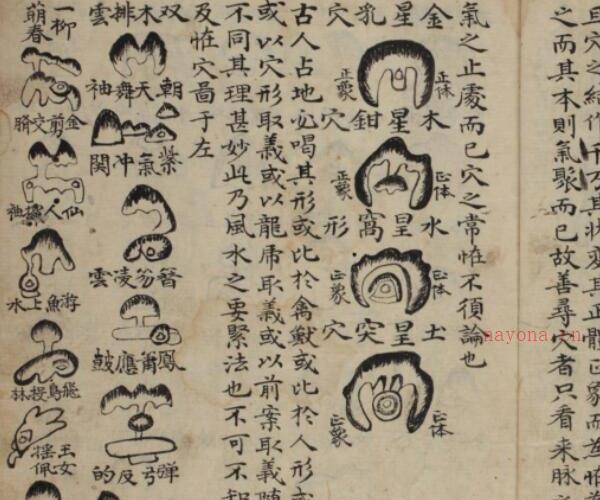 且穴之結作
其状変其正體正象而為怪
之而其本則氣聚而已故善尋穴者只看来脉
氣之止處而已穴之常怪不須論也
金星乳穴
正体
正象
木星鉗穴
正体
正象
水星窩形
正体
正象
土星突穴
正体
正象
古人占地必喝其形或比於禽獸或比於人形或
或以穴形取義或以龍虎取義或以前案取義
不同其理甚妙此乃風水之要緊法也不可不知
及怪穴圖于左
双木排雲
朝天舞袖
紫氣冲関
凌雲
鳳簫應鼓
弹弓反的
一柳萌春
金剪交
仙人袖
游魚上水
飛鳥投林
玉女摇佩
nayona.cn